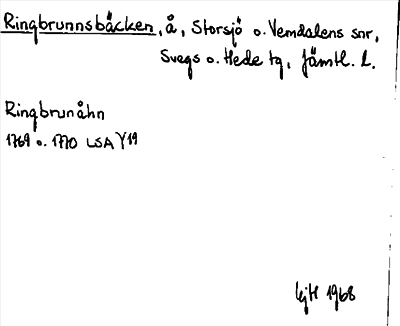 Ringbrunnsbäcken, å, Storsjö o. Vemdalens snr,
Svegs o. Hede tg, Jämtl. l.
Ringbrunåhn
1769 o. 1770 LSA Y19
1968